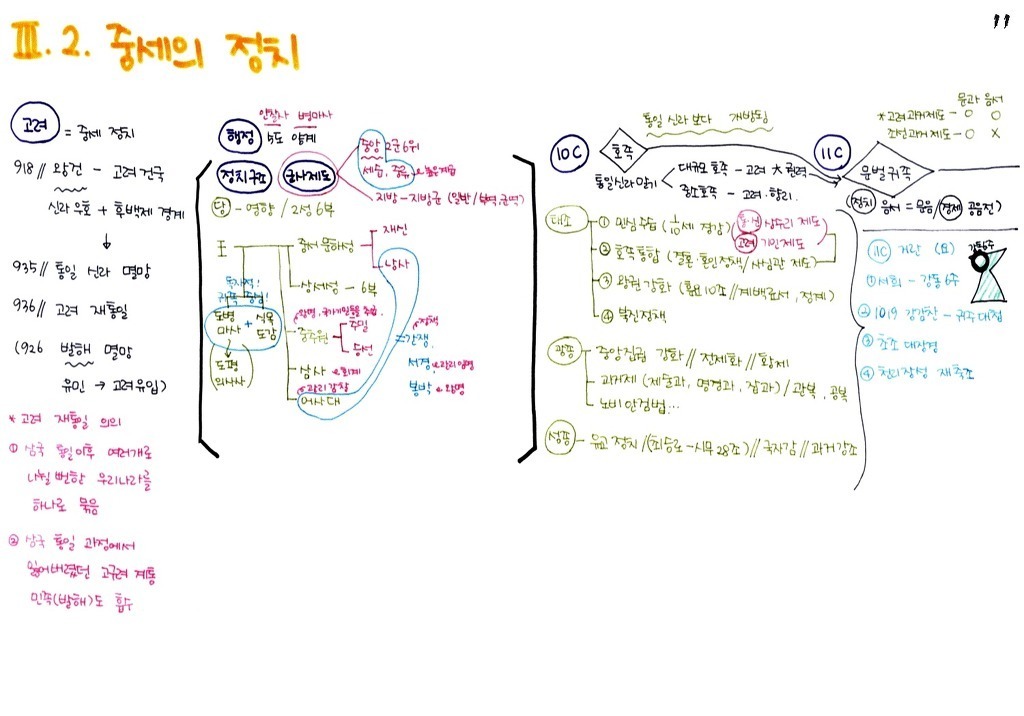 11
III. 2. 중세의 정치
고려 = 중세 정치
918 // 왕건 - 고려 건국
신라 우호 + 후백제 경계
↓
935 // 통일 신라 멸망
936 // 고려 재통일
(926 발해 멸망
유민 → 고려 유입)
* 고려 재통일 의의
① 삼국 통일 이후 여러개로
나뉠 뻔한 우리나라를
하나로 묶음
② 삼국 통일 과정에서
잃어버렸던 고구려 계통
민족(발해)도 흡수
안찰사 병마사
행정 5도 양계
정치구조 군사제도
중앙 2군 6위
세습, 중류
지방 - 지방군 (일반/
당 - 영향 / 2성 6부
王
중서문하성
재신
낭사
상서성 - 6부
독자적!
귀족
도병마사 + 식목도감
도평의사사
중추원
추밀
승선
삼사 회계
관리감찰
어사대
= 간쟁, 정책
서경, 관리임명
봉박 왕명
통일 신라 보다 개방됨
10C 호족
통일신라 말기
대규모 호족 - 고려 * 권력
중소호족 - 고려. 향리.
* 고려 과거제도 - O O
문과 음서
조선 과거제도 - O X
11C 문벌귀족
정치 음서 = 문음 / 경제 공음전)
태조
① 민심수습 (1/10세 경감)
통·신 상수리 제도
고려 기인제도
② 호족통합 (결혼·혼인정책/사심관 제도)
③ 왕권 강화 (훈요10조 // 계백료서, 정계)
④ 북진정책
광종 - 중앙집권 강화 // 전제화 // 황제
과거제 (제술과, 명경과, 잡과) / 관복, 공복
노비안검법...
성종 - 유교 정치 / (최승로 - 시무 28조) // 국자감 // 과거 강조
11C 거란 (요)
강동6주
① 서희 - 강동 6주
② 1019 강감찬 - 귀주대첩
③ 초조 대장경
④ 천리장성 재축조